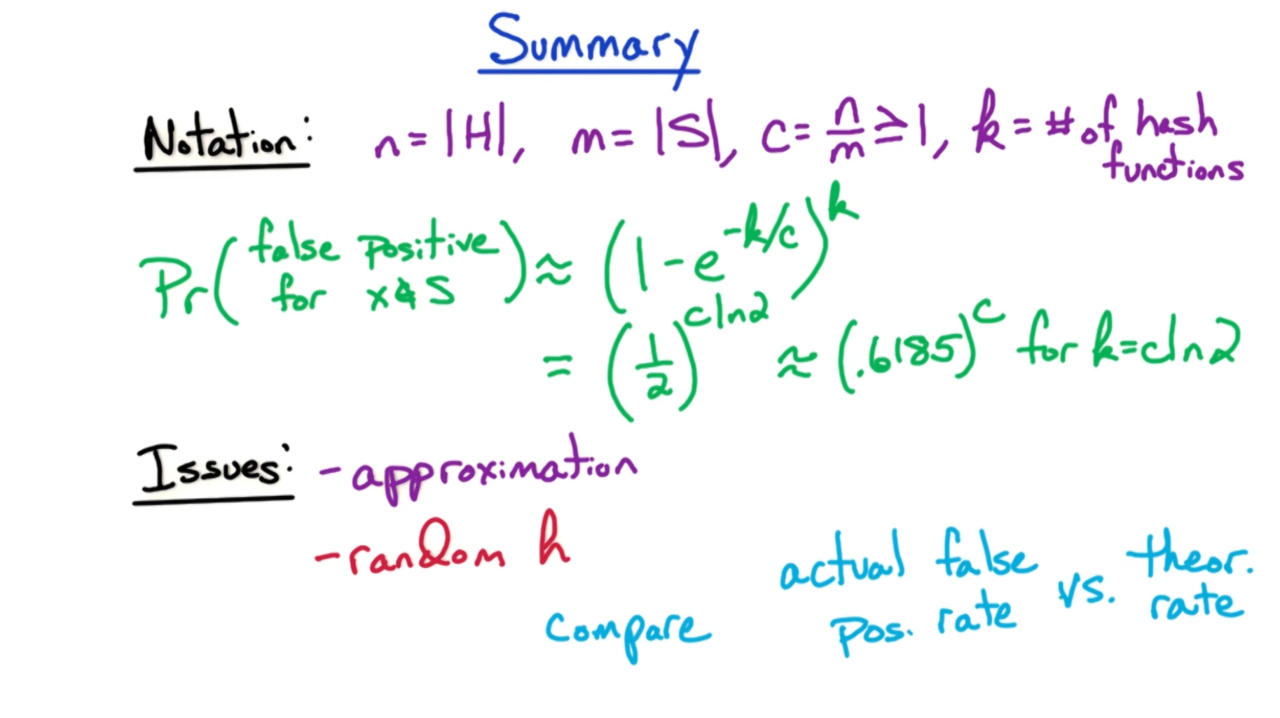 Summary
Notation: n = |H|, m = |S|, c = n/m ≥ 1, k = # of hash functions
Pr(false positive for x∉S) ≈ (1 - e^{-k/c})^k
= (1/2)^{c ln 2} ≈ (.6185)^c for k = c ln 2
Issues: - approximation
- random h
compare actual false pos. rate vs. theor. rate